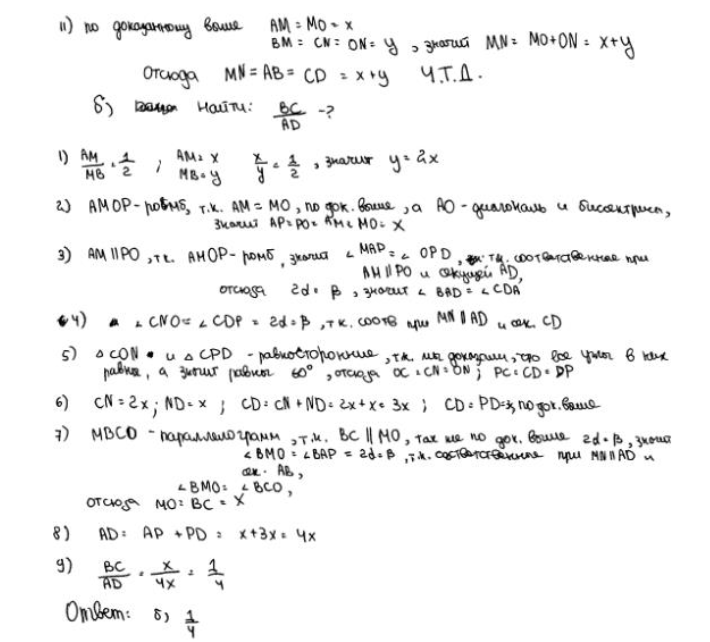 11) по доказанному выше AM = MO = x
BM = CN = ON = y, значит MN = MO+ON = x+y
Отсюда MN = AB = CD = x+y Ч.Т.Д.
б) Найти: BC/AD -?
1) AM/MB = 1/2 ; AM = x MB = y x/y = 1/2, значит y = 2x
2) AMOP - ромб, т.к. AM = MO, по док. выше, а AO - диагональ и биссектриса,
значит AP = PO = AM = MO = x
3) AM || PO, т.к. AMOP - ромб, значит ∠MAP = ∠OPD, т.к. соответственные при
AM || PO и секущей AD,
отсюда 2d = β, значит ∠BAD = ∠CDA
4) ∠CNO = ∠CDP = 2d = β, т.к. соотв при MN || AD и сек. CD
5) △CON и △CPD - равносторонние, т.к. мы доказали, что все углы в них
равны, а значит равны 60°, отсюда OC = CN = ON ; PC = CD = DP
6) CN = 2x ; ND = x ; CD = CN + ND = 2x + x = 3x ; CD = PD = 3, по док. выше
7) MBCO - параллелограмм, т.к. BC || MO, так же по док. выше 2d = β, значит
∠BMO = ∠BAP = 2d = β, т.к. соответственные при MN || AD и
сек. AB,
∠BMO = ∠BCO,
отсюда MO = BC = x
8) AD = AP + PD = x + 3x = 4x
9) BC/AD = x/4x = 1/4
Ответ: б) 1/4